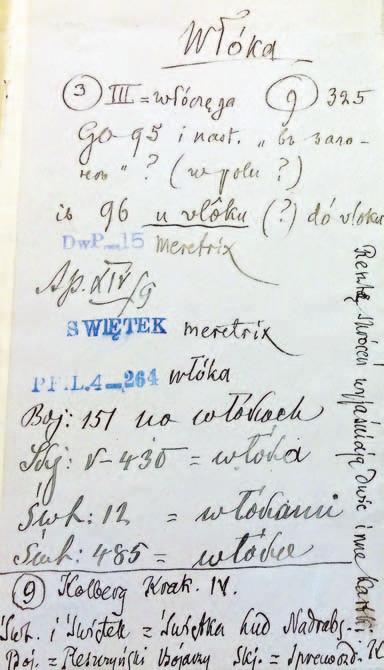 Włóka
③ III = włóczęga ⑨ 325
Go 95 i nast. „ въ вало-
" ? (w polu ?)
ib 96 u vłôku (?) dó vłoku
DwP 15 meretrix
Ap. XIV/9
ŚWIĘTEK meretrix
PF.L.4 264 włóka
Boj: 151 na włókach
Skj: V-430 = włóka
Św: 12 = włókami
Św: 485 = włóka
⑨ Kolberg Krak. IV.
Święt. i Świętek = Świętka Lud Nadrabs.
Boj. = Pleszczyński Bojarzy Skj. = Sprawozd.
Resztę skróceń wyjaśniają dwie inne kartki.